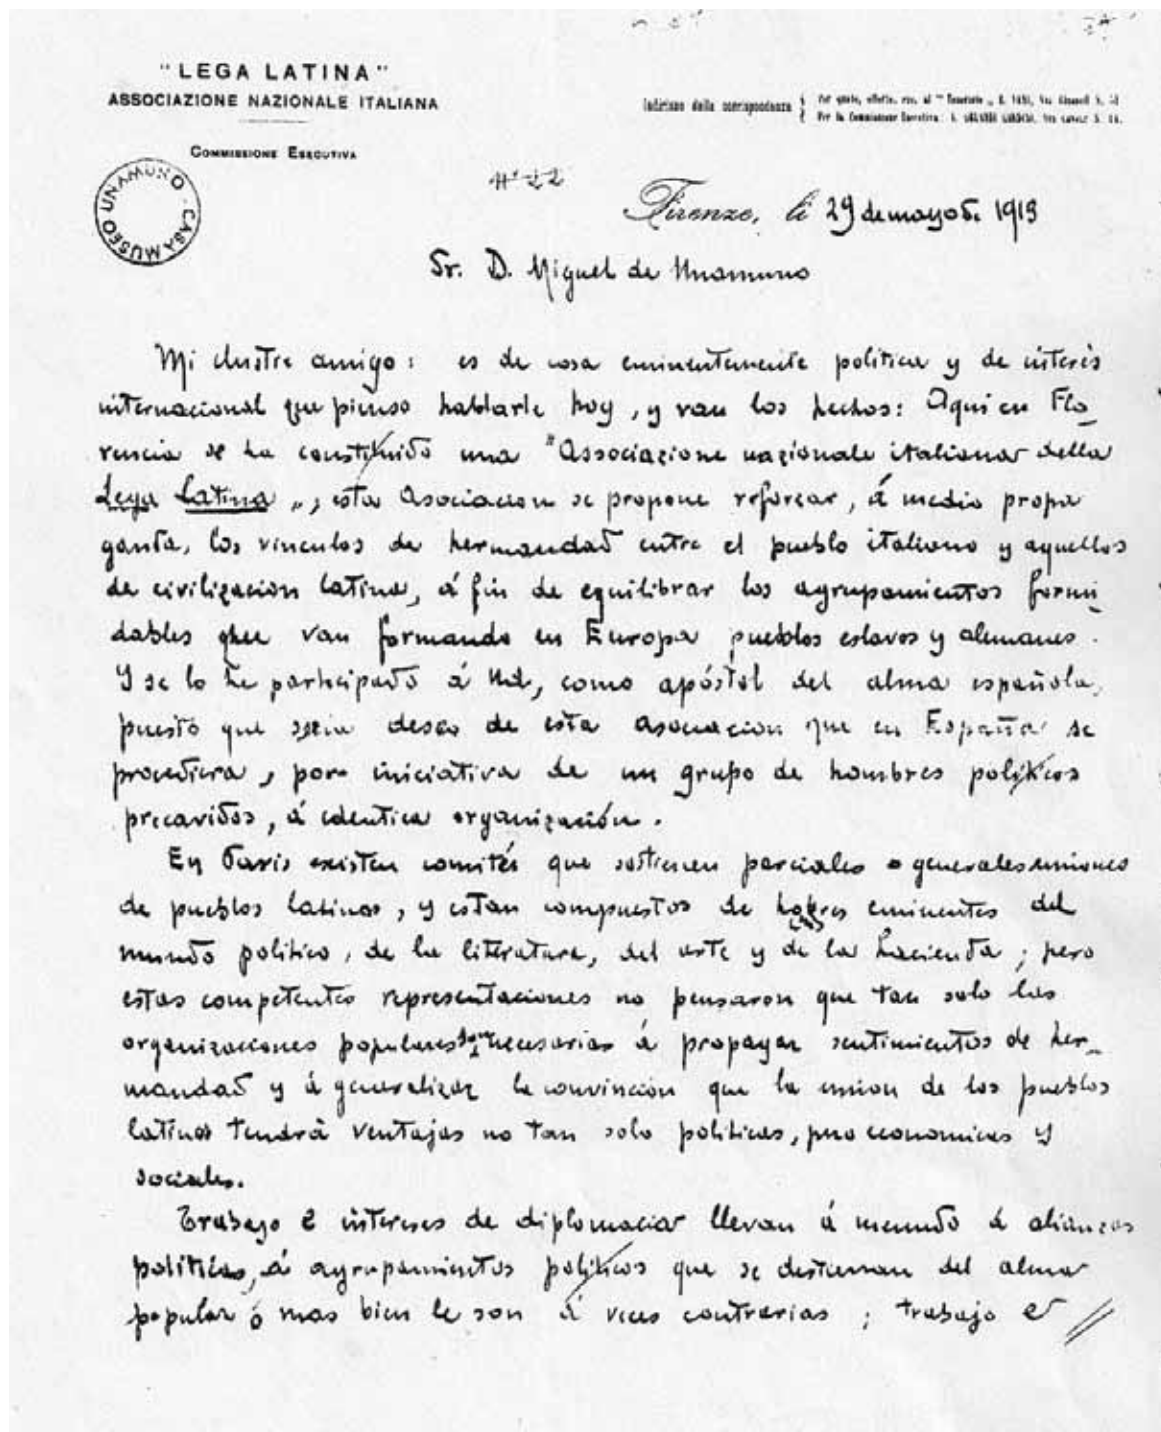 "LEGA LATINA"
ASSOCIAZIONE NAZIONALE ITALIANA
COMMISSIONE ESECUTIVA
Indirizzo della corrispondenza
UNAMUNO - CASA MUSEO
Nº 22
Firenze, li 29 de mayo de 1919
Sr. D. Miguel de Unamuno
Mi ilustre amigo: es de cosa eminentemente politica y de interés
internacional que pienso hablarle hoy, y van los hechos: Aqui en Flo-
rencia se ha constituido una "Associazione nazionale italiana della
Lega Latina", esta Asociacion se propone reforzar, á medio propa
ganda, los vinculos de hermandad entre el pueblo italiano y aquellos
de civilizacion latina, á fin de equilibrar los agrupamientos formi-
dables que van formando en Europa pueblos eslavos y alemanes.
Y se lo he participado á Ud, como apóstol del alma española,
puesto que seria deseo de esta asociacion que en España se
procediera, por iniciativa de un grupo de hombres politicos
precavidos, á identica organización.
En Paris existen comités que sostienen parciales o generales uniones
de pueblos latinos, y estan compuestos de eminentes del
mundo politico, de la literatura, del arte y de la hacienda; pero
estas competentes representaciones no pensaron que tan solo las
organizaciones populares son necesarias á propagar sentimientos de her-
mandad y á generalizar la convincion que la union de los pueblos
latinos tendrá ventajas no tan solo politicas, pero economicas y
sociales.
Trabajo e intereses de diplomacia llevan á menudo á alianzas
politicas, á agrupamientos politicos que se destierran del alma
popular ó mas bien le son á veces contrarias; trabajo e